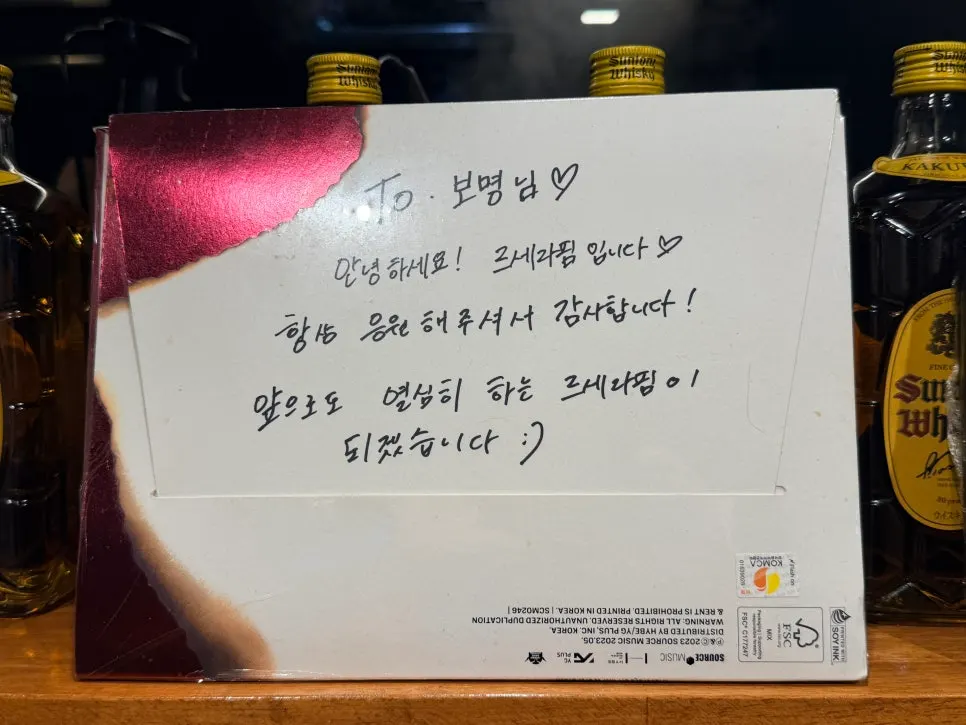 Suntory
Whisky
Suntory
Whisky
Suntory
Whisky
To. 보명님♡
안녕하세요! 르세라핌입니다♡
항상 응원해주셔서 감사합니다!
앞으로도 열심히 하는 르세라핌이
되겠습니다 :)
KOMCA
& RENT IS PROHIBITED. PRINTED IN KOREA | SCM0246 |
WARNING: ALL RIGHTS RESERVED. UNAUTHORIZED DUPLICATION
DISTRIBUTED BY HYBE/YG PLUS, INC. KOREA.
℗&© 2023 SOURCE MUSIC 2023.05.
SOURCE MUSIC
YG PLUS
FSC
MIX
FSC® C177247
PRINTED WITH
SOY INK